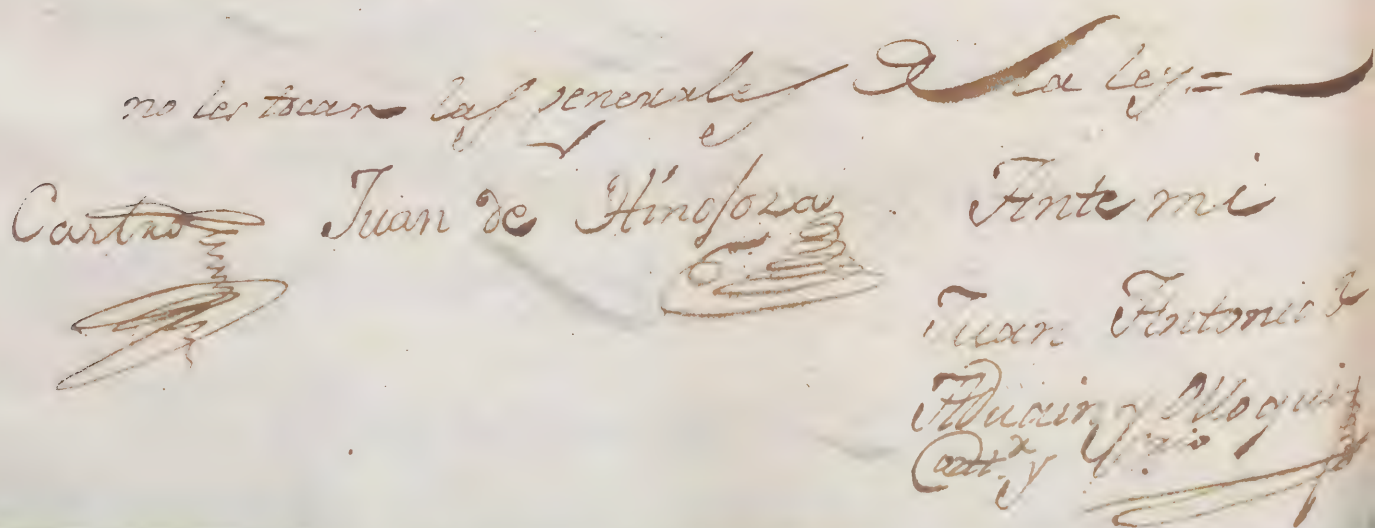 no les tocan las generales de la ley =
Castro Juan de Hinosoza Ante mi
Juan Antonio de
Aduain y